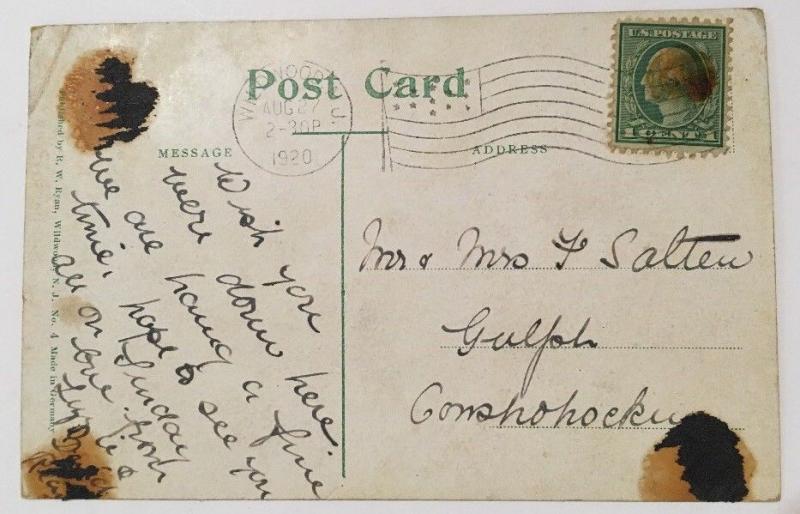 Post Card
U.S. POSTAGE
1 CENT 1
AUG 27
2-30P
1920
N.J.
MESSAGE
ADDRESS
Wish you
were down here
we are having a fine
time, hope to see you
all on Sunday
Mr & Mrs F Salten
Gulph
Conshohocken
Published by R. W. Ryan, Wildwood, N. J. No. 4 Made in Germany